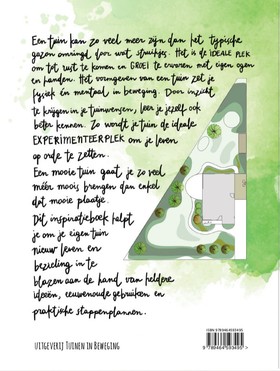 Een tuin kan zo veel meer zijn dan het typische
gazon omringd door wat struikjes. Het is de IDEALE PLEK
om tot rust te komen en GROEI te ervaren met eigen ogen
en handen. Het vormgeven van een tuin zet je
fysiek én mentaal in beweging. Door inzicht
te krijgen in je tuinwensen, leer je jezelf ook
beter kennen. Zo wordt je tuin de ideale
EXPERIMENTEERPLEK om je leven
op orde te zetten.
Een mooie tuin gaat je zo veel
méér moois brengen dan enkel
dat mooie plaatje.
Dit inspiratieboek helpt
je om je eigen tuin
nieuw leven en
bezieling in te
blazen aan de hand van heldere
ideeën, eeuwenoude gebruiken en
praktische stappenplannen.
UITGEVERIJ TUINEN IN BEWEGING
ISBN 9789464593495
9 789464 593495 >